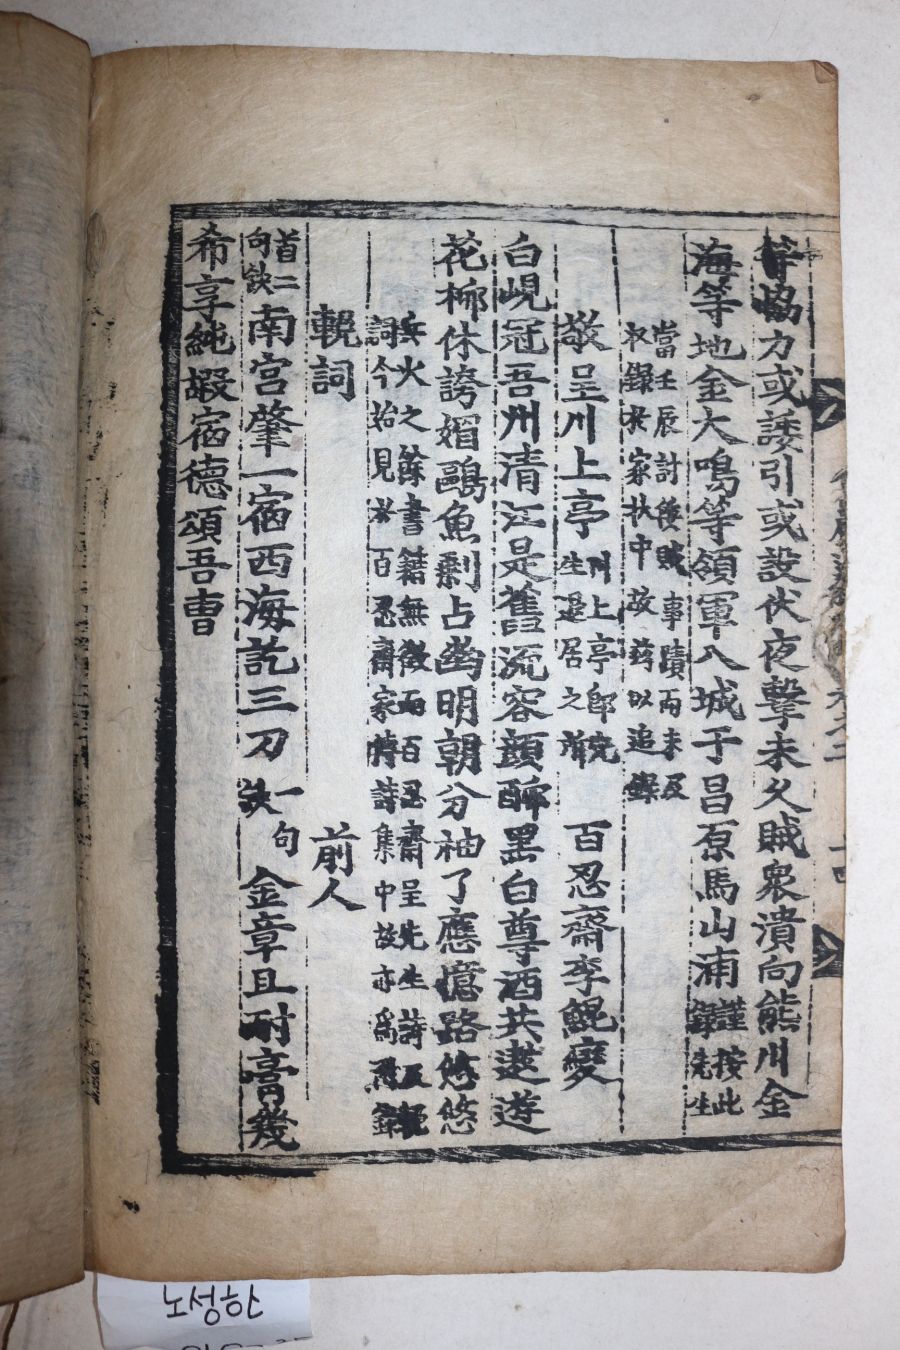 等協力或誘引或設伏夜擊未久賊衆潰向熊川金
海等地金大鳴等領軍入城于昌原馬山浦謹按此錄先生
當壬辰討倭賊事蹟而未及
收錄於家狀中故玆以追錄
敬呈川上亭川上亭卽先生退居之 百忍齋李鯤變
白峴冠吾州清江是舊流容顔酔墨白尊酒共遨遊
花柳休誇媚鷗魚剩占幽明朝分袖了應憶路悠悠
兵火之餘書籍無徵而百忍齋呈先生詩及輓
詞今始見於百忍齋家傳詩集中故亦爲附錄
輓詞 前人
首二句缺南宮肇一宿西海託三刀一句缺金章且耐膏幾
希享純嘏宿德頌吾曹
노성한